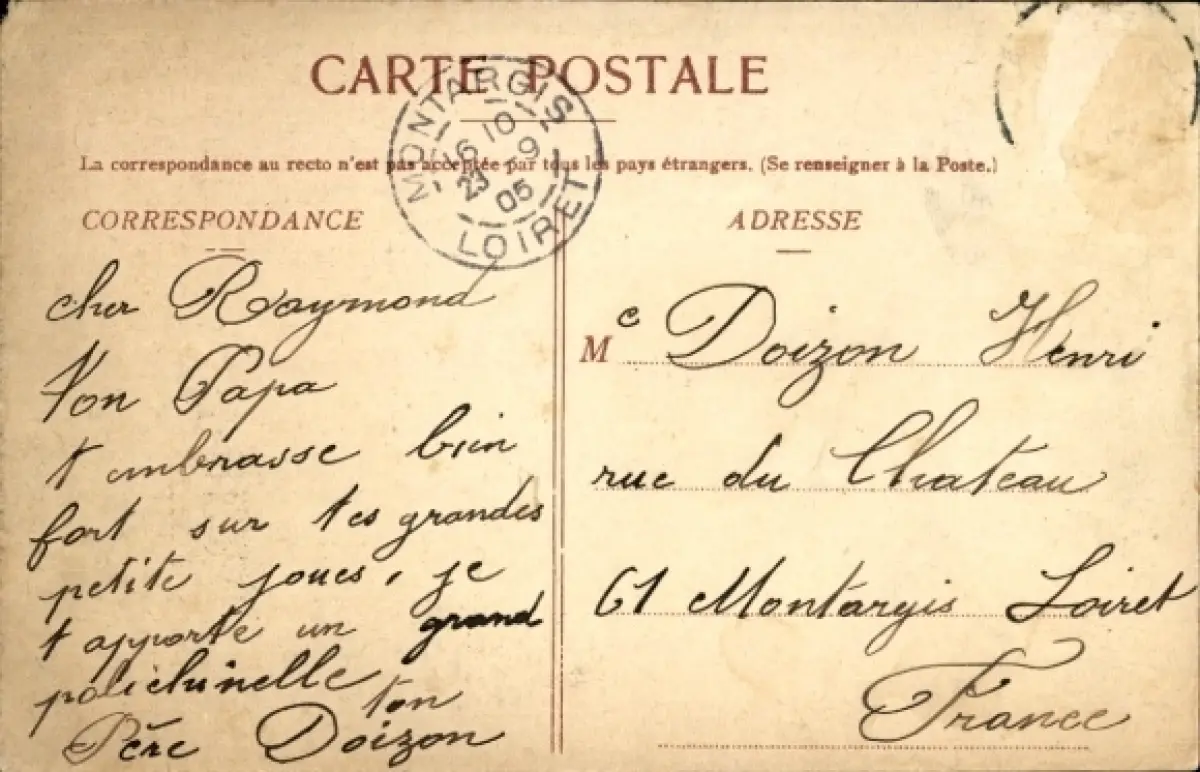 CARTE POSTALE
MONTARGIS
16 10
23 - 9
05
LOIRET
La correspondance au recto n'est pas acceptée par tous les pays étrangers. (Se renseigner à la Poste.)
CORRESPONDANCE
cher Raymond
Ton Papa
t embrasse bien
fort sur tes grandes
petite joues, je
t apporte un grand
polichinelle
ton
Père Doizon
ADRESSE
Me Doizon Henri
rue du Chateau
61 Montargis Loiret
France